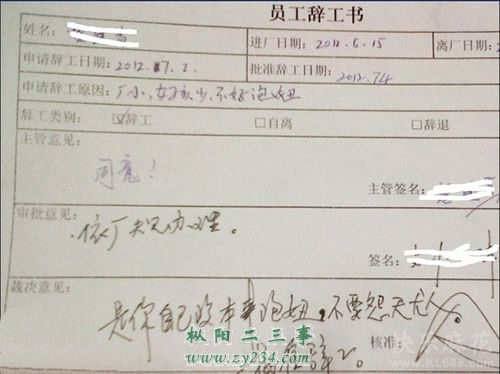 员工辞工书
姓名： 进厂日期: 2012.5.15 离厂日期:
申请辞工日期: 2012.7.2. 批准辞工日期: 2012.7.4
申请辞工原因: 厂小,女孩少,不好泡妞
辞工类别: ☑辞工 □自离 □辞退
主管意见:
同意!
主管签名:
审批意见:
依厂规办理。
签名:
裁决意见:
是你自己没本事泡妞,不要怨天尤人
核准:
辞工。
枞阳二三事
www.zy234.com
www.KL688.com